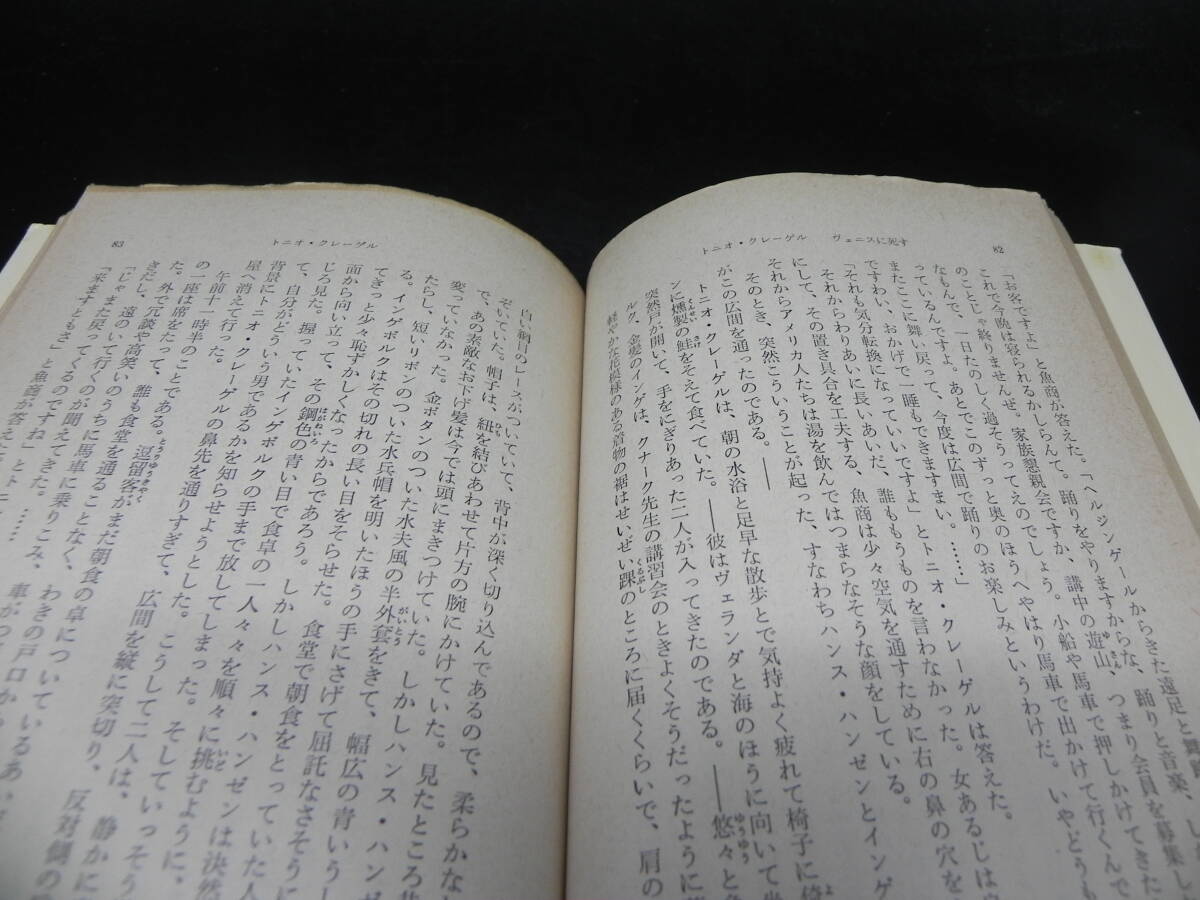 82
トニオ・クレーゲル ヴェニスに死す
「お客ですよ」と魚商が答えた。「ヘルジンゲールからきた遠足と舞踏
これで今晩は寝られるかしらんて。踊りをやりますからな、踊りと音楽、し
のことじゃ終りませんぜ。家族懇親会ですか、講中の遊山、つまり会員を募集し
て、一日たのしく過そうってえのでしょう。小船や馬車で押しかけてきた
なもんで、あとでこのずっと奥のほうへやはり馬車で出かけて行くんで
っているんですよ。今度は広間で踊りのお楽しみというわけだ。いやどうも
またここに舞い戻って、
ですわい、おかげで一睡もできますまい。……」
「それも気分転換になっていいですよ」とトニオ・クレーゲルは答えた。
それからわりあいに長いあいだ、誰ももうものを言わなかった。女あるじは
にして、その置き具合を工夫する、魚商は少々空気を通すために右の鼻の穴を
それからアメリカ人たちは湯を飲んではつまらなそうな顔をしている。
そのとき、突然こういうことが起った、すなわちハンス・ハンゼンとインゲ
がこの広間を通ったのである。――
トニオ・クレーゲルは、朝の水浴と足早な散歩とで気持よく疲れて椅子に倚
ンに燻製の鮭をそえて食べていた。――彼はヴェランダと海のほうに向いて坐
突然戸が開いて、手をにぎりあった二人が入ってきたのである。――悠々と
ルク、金髪のインゲは、クナーク先生の講習会のときよくそうだったように
軽やかな花模様のある着物の裾はせいぜい踝のところに届くくらいで、肩の
83
トニオ・クレーゲル
白い絹レースがついていて、背中が深く切り込んであるので、柔らかな
ぞいていた。帽子は、紐を結びあわせて片方の腕にかけていた。見たところ
で、あの素敵なお下げ髪は今では頭にまきつけていた。しかしハンス・ハンゼ
変っていなかった。金ボタンのついた水夫風の半外套をきて、幅広の青いうし
たらし、短いリボンのついた水兵帽を明いたほうの手にさげて屈託なさそうに
る。インゲボルクはその切れの長い目をそらせた。食堂で朝食をとっていた人
てきっと少々恥ずかしくなったからであろう。しかしハンス・ハンゼンは決然
面から向い立って、その鋼色の青い目で食卓の一人々々を順々に挑むように、
じろ見た。握っていたインゲボルクの手まで放してしまった。そしていっそう
て、自分がどういう男であるかを知らせようとした。こうして二人は、静かに
背景にトニオ・クレーゲルの鼻先を通りすぎて、広間を縦に突切り、反対側の
屋へ消えて行った。
午前十一時半のことである。逗留客がまだ朝食の卓についているあいだ
の一座は席をたって、誰も食堂を通ることなく、わきの戸口から
た。外で冗談や高笑いのうちに馬車に乗りこみ、
きだし、遠のいて行くのが聞えてきた。……
「じゃまた戻ってくるのですね」とトニ
「来ますともさ」と魚商が答えた。